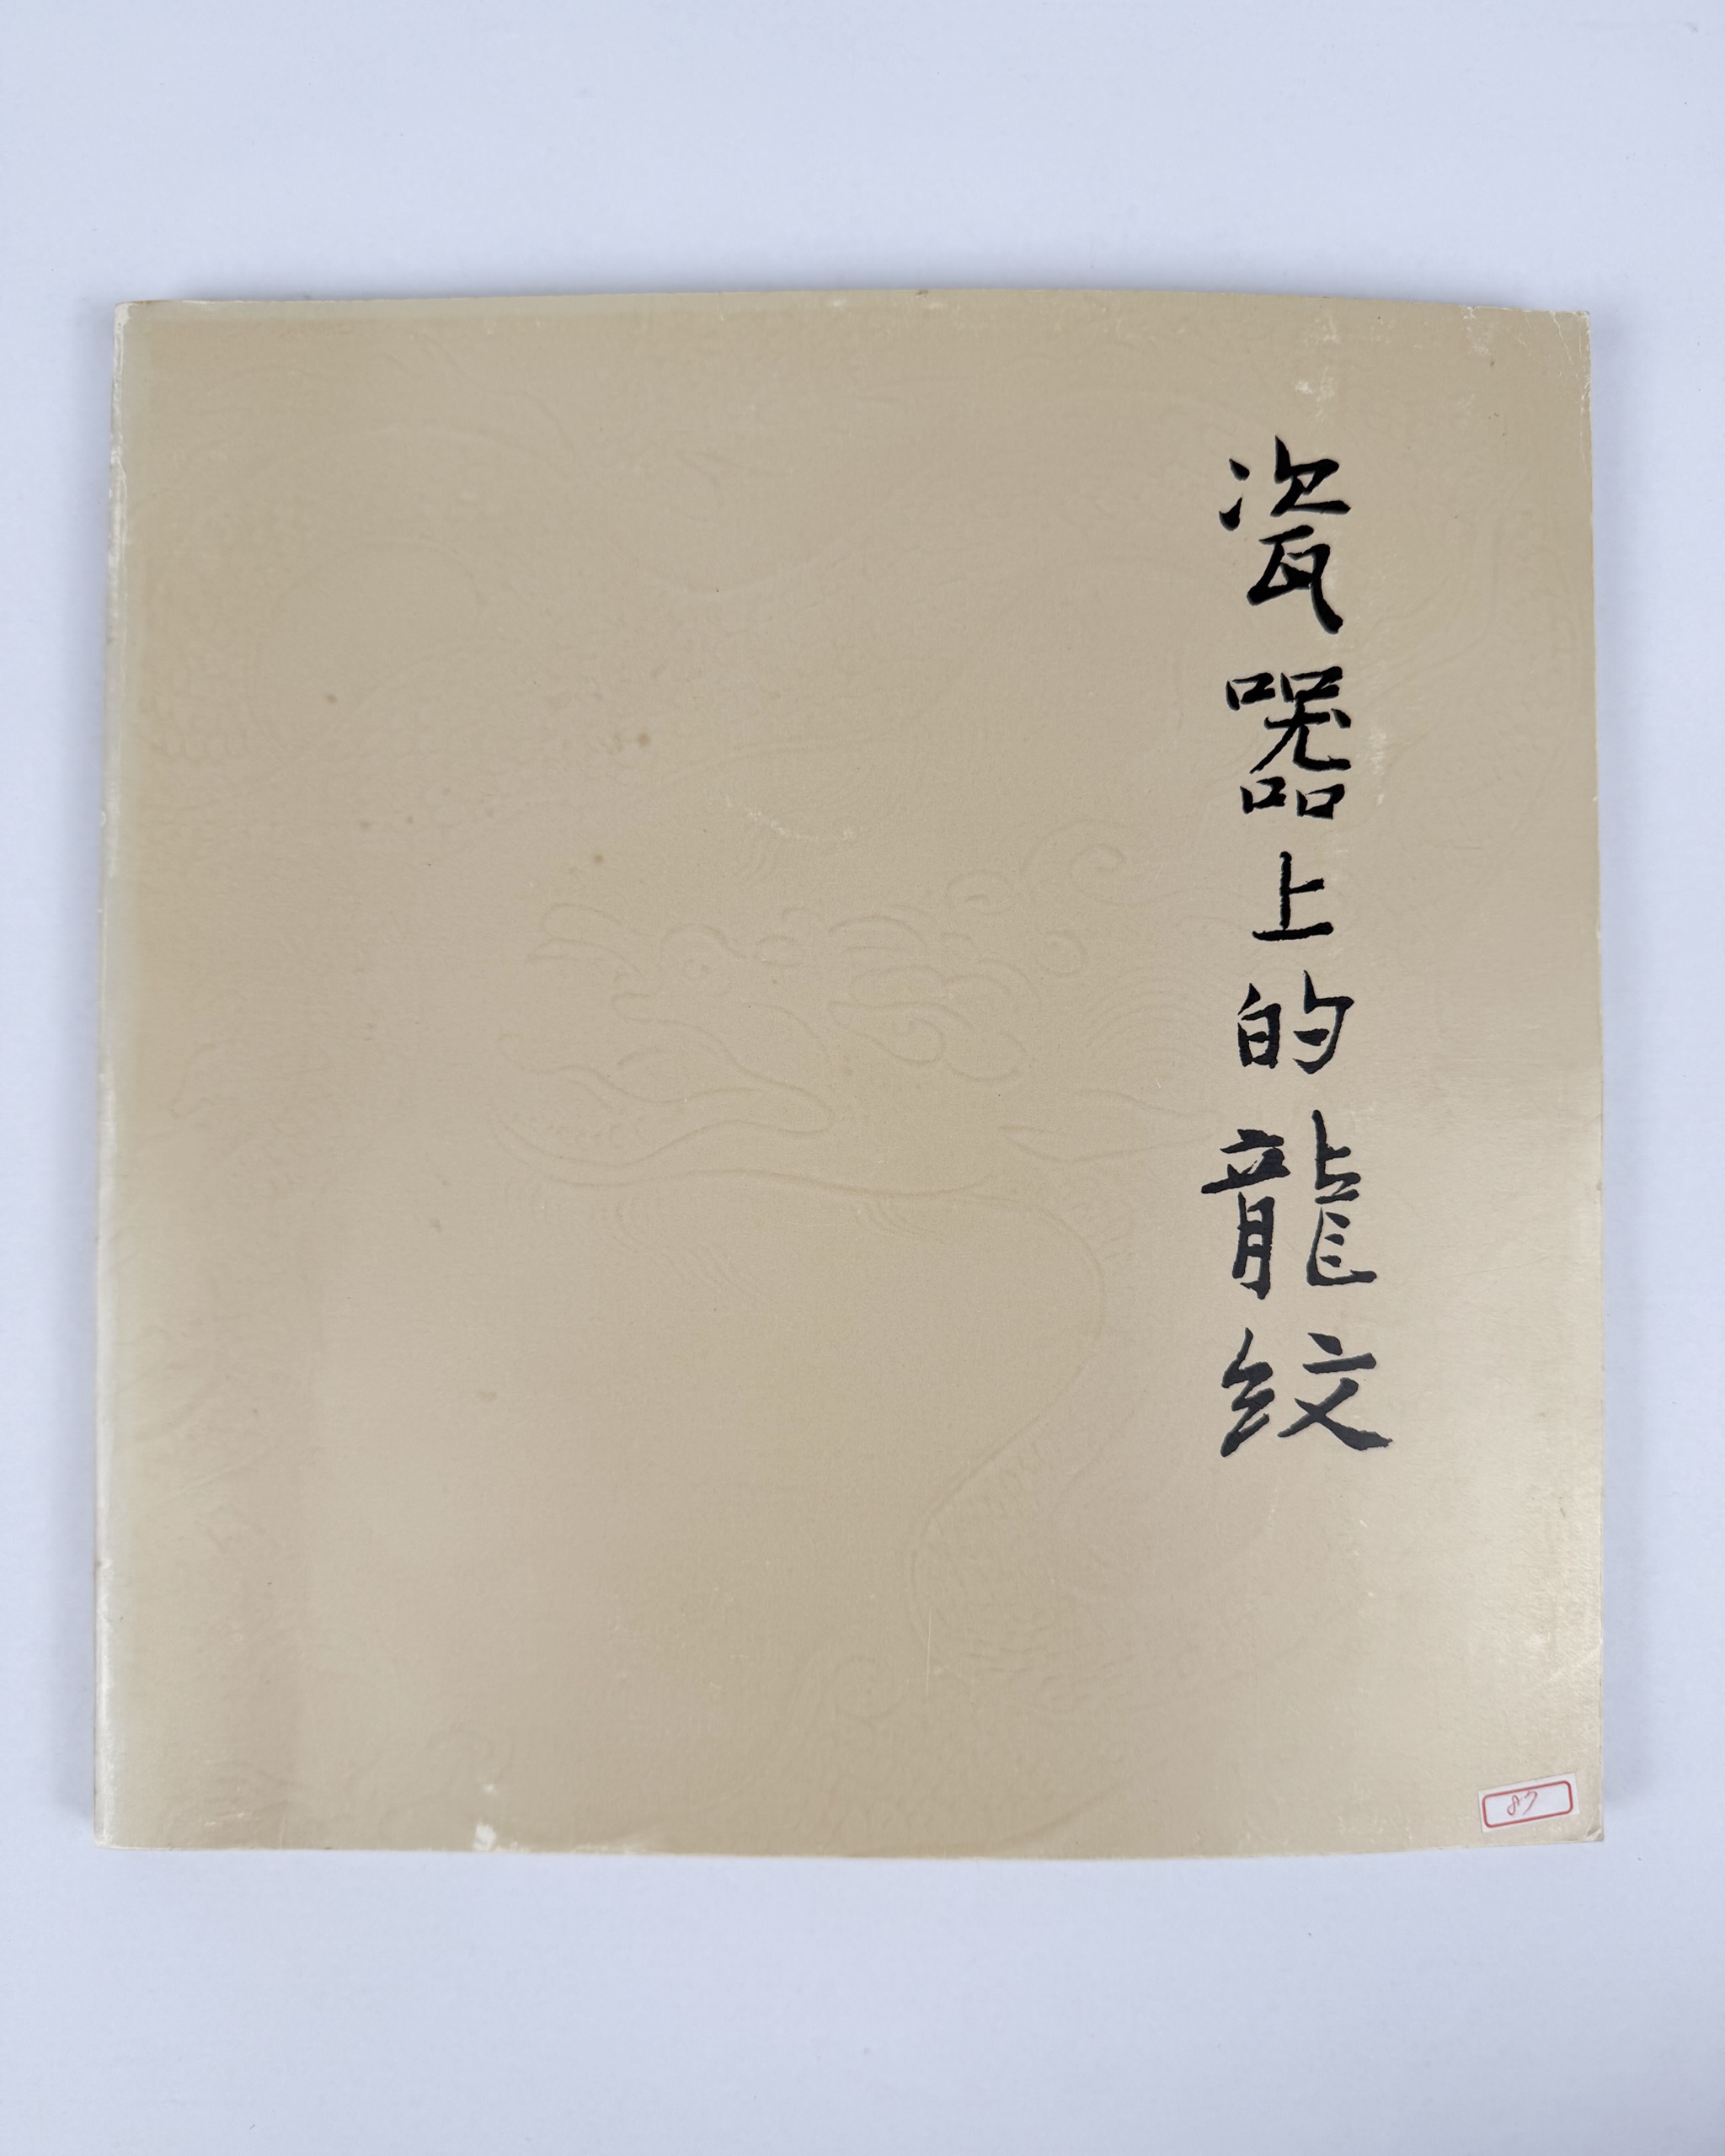 瓷器上的龍紋
87